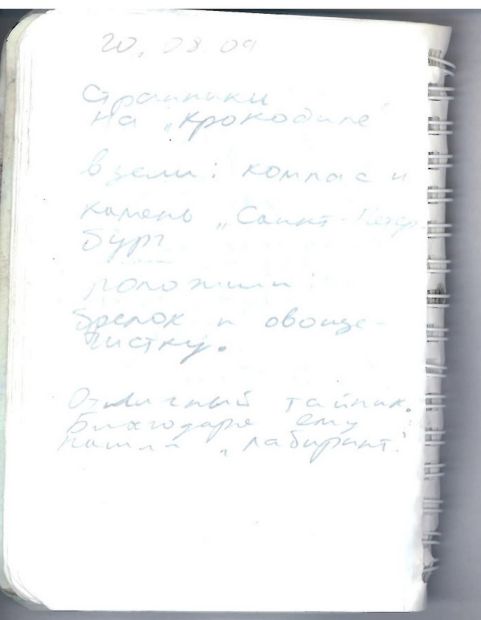 20.08.09
Странники
на "крокодиле"
взели: компас и
камень "Санкт-Петер
бург
положили:
брелок и овоще-
чистку.
Отличный тайник.
Благодаря ему
нашли "лабиринт"!